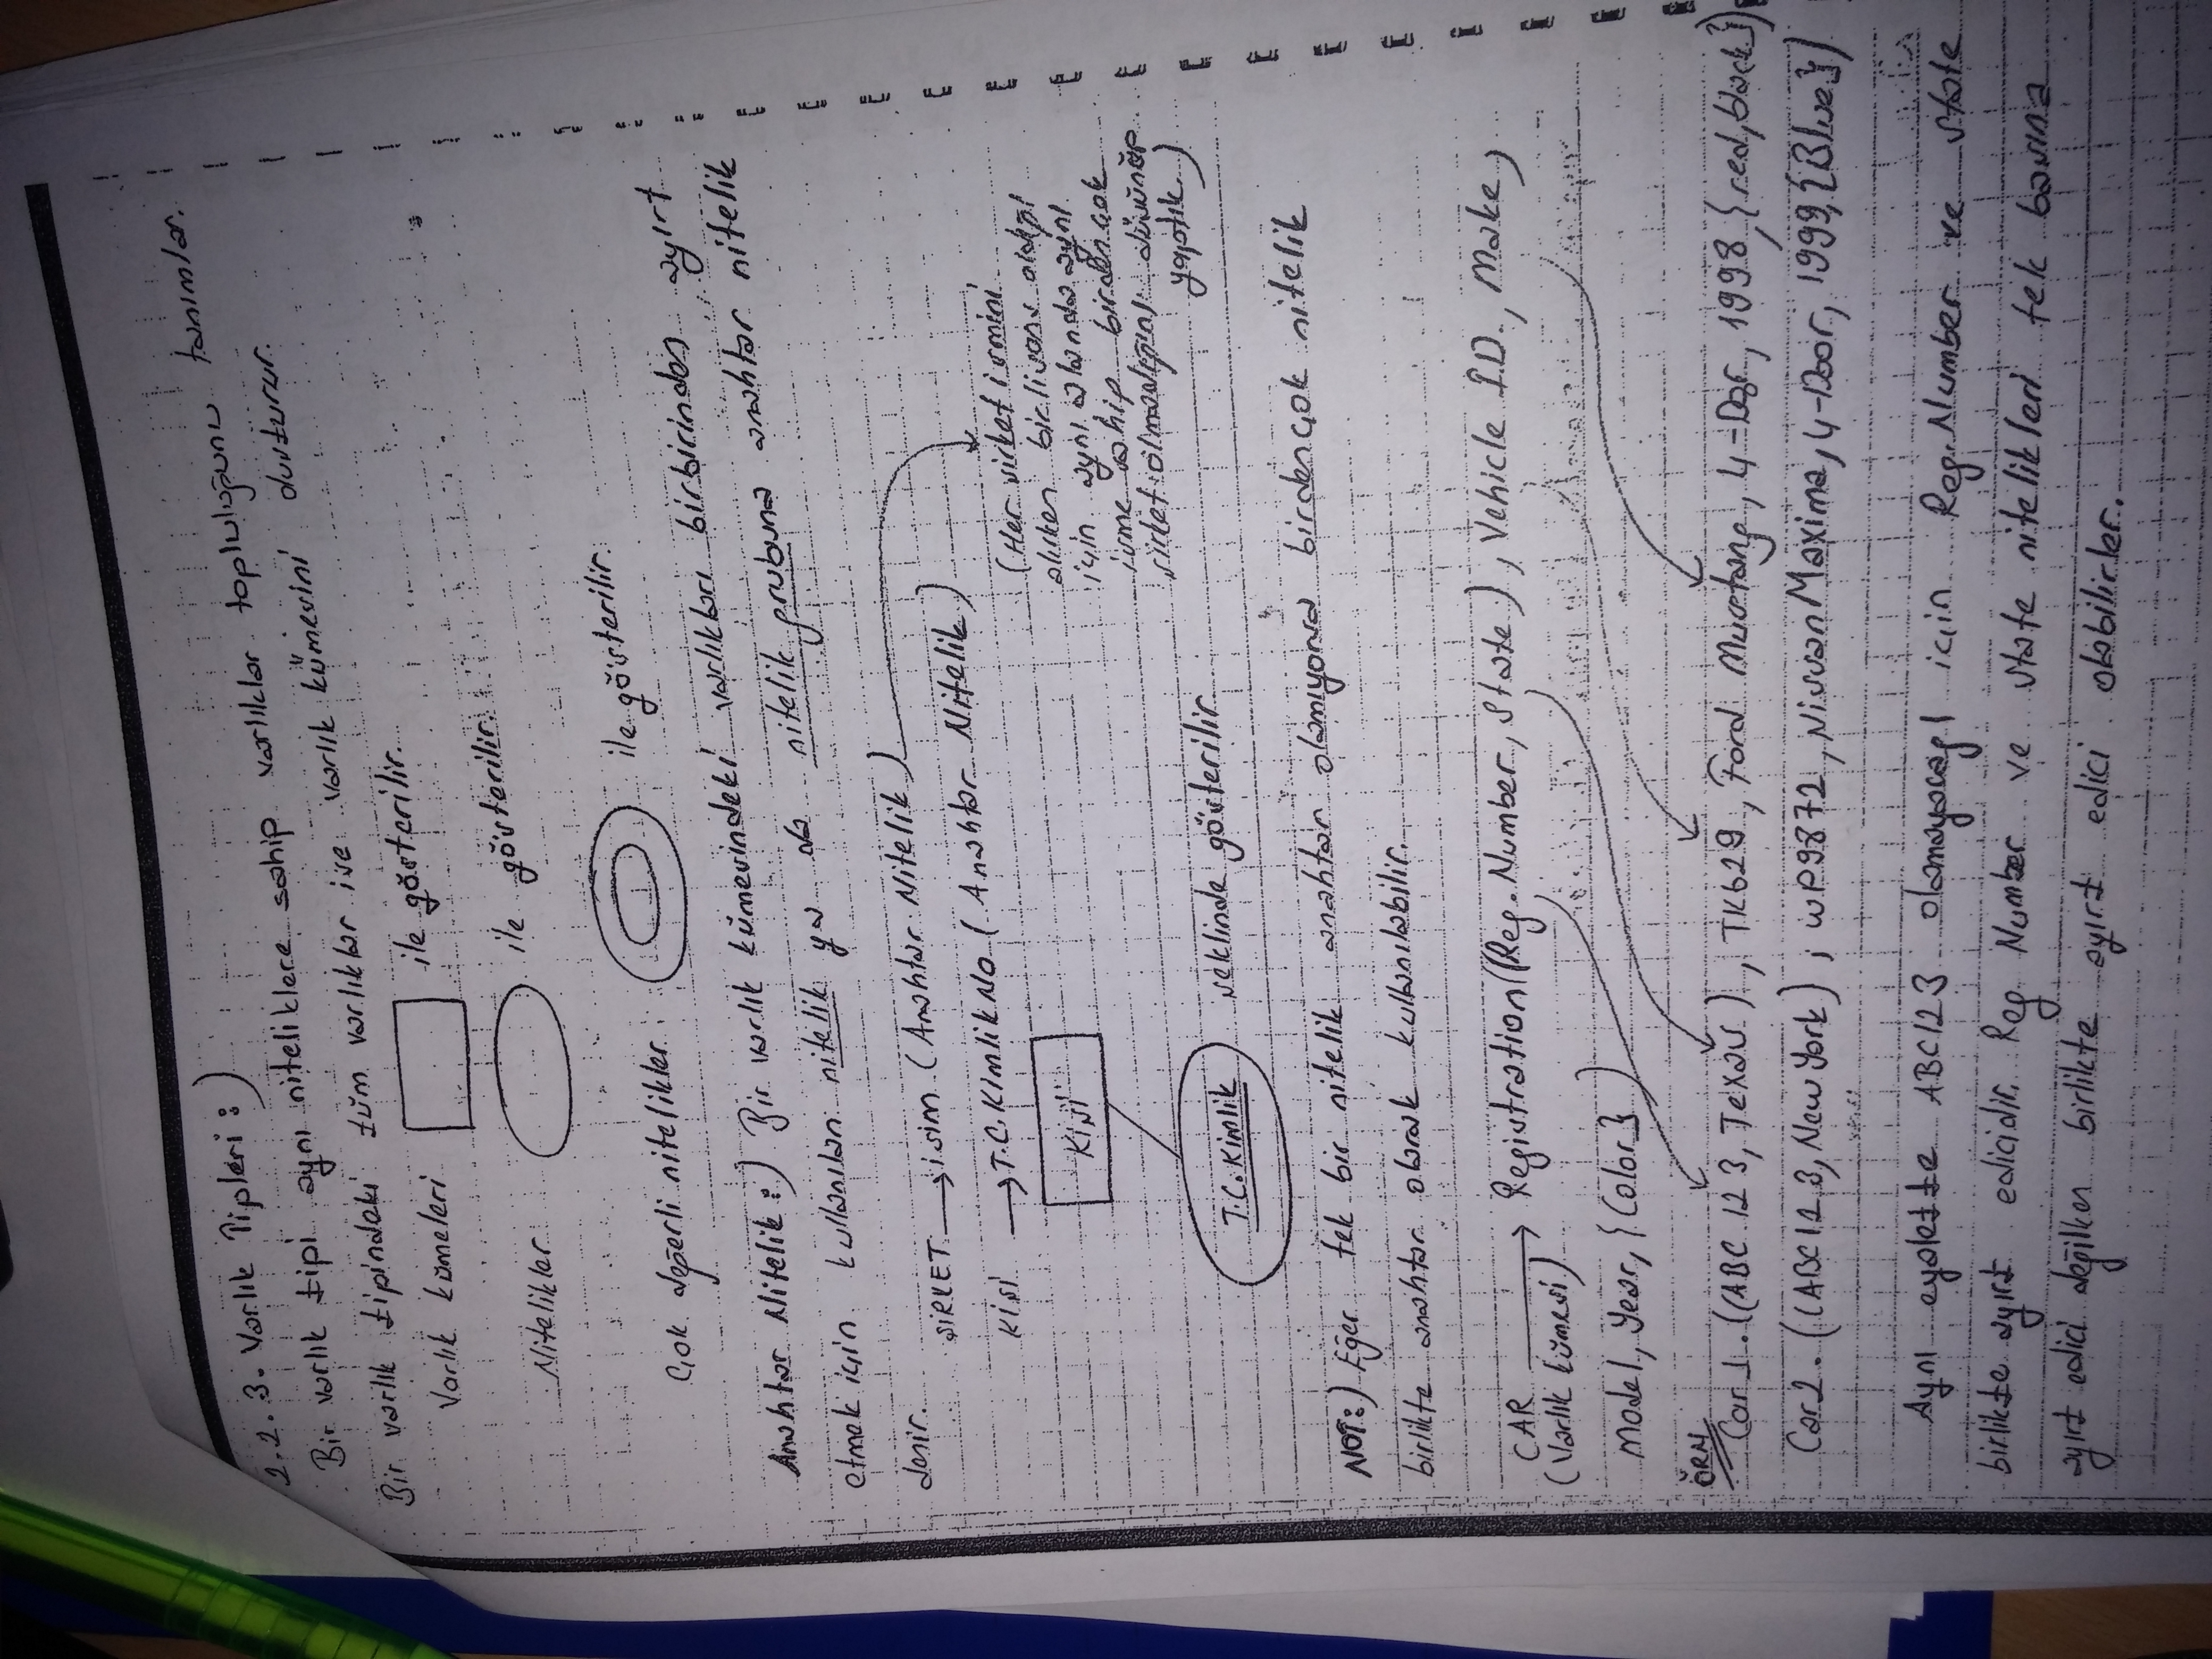 2.2.3. Varlık Tipleri :)
Bir varlık tipi aynı niteliklere sahip varlıklar topluluğunu tanımlar.
Bir varlık tipindeki tüm varlıklar ise varlık kümesini oluşturur.
Varlık kümeleri ile gösterilir.
Nitelikler ile gösterilir.
Çok değerli nitelikler ile gösterilir.
Anahtar Nitelik :) Bir varlık kümesindeki varlıkları birbirinden ayırt
etmek için kullanılan nitelik ya da nitelik grubuna anahtar nitelik
denir.
ŞİRKET → isim (Anahtar Nitelik)
KİŞİ → T.C. Kimlik No (Anahtar Nitelik)
(Her şirket ismini
alırken bir lisans aldığı
için aynı alanda aynı
isme sahip birden çok
şirket olmadığını düşünüp
yaptık.)
Kişi
T.C. Kimlik şeklinde gösterilir.
NOT :) Eğer tek bir nitelik anahtar olamıyorsa birden çok nitelik
birlikte anahtar olarak kullanılabilir.
CAR → Registration (Reg. Number, State), Vehicle ID, Make,
(Varlık kümesi)
Model, Year, {Color})
ÖRN
Car 1. ((ABC 123, Texas), TK629, Ford Mustang, 4-Door, 1998, {red, black})
Car 2. ((ABC123, New York), WP9872, Nissan Maxima, 4-Door, 1999, {Blue})
Aynı eyalette ABC123 olamayacağı icin Reg. Number ve State
birlikte ayırt edicidir. Reg Number ve State nitelikleri tek başına
ayırt edici değilken birlikte ayırt edici olabilirler.